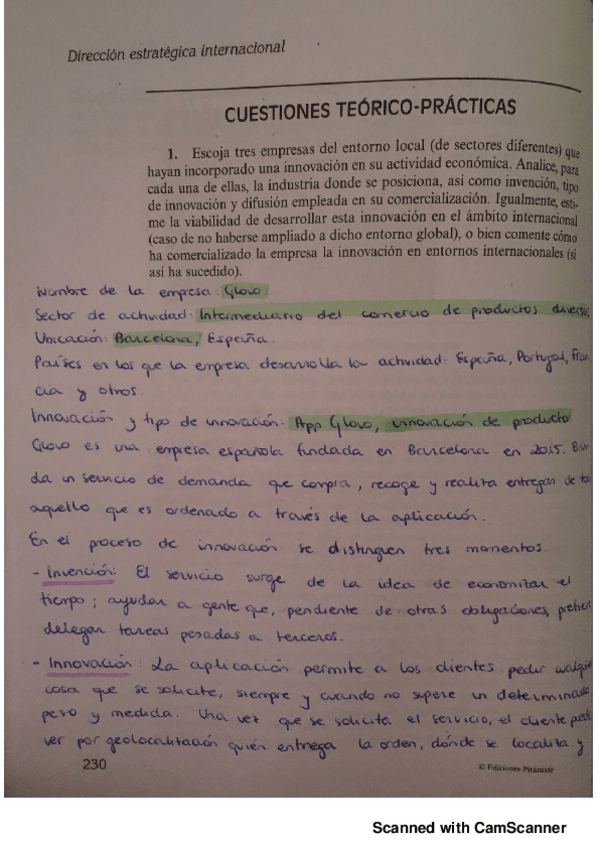 Dirección estratégica internacional
CUESTIONES TEÓRICO-PRÁCTICAS
1. Escoja tres empresas del entorno local (de sectores diferentes) que
hayan incorporado una innovación en su actividad económica. Analice, para
cada una de ellas, la industria donde se posiciona, así como invención, tipo
de innovación y difusión empleada en su comercialización. Igualmente, esti-
me la viabilidad de desarrollar esta innovación en el ámbito internacional
(caso de no haberse ampliado a dicho entorno global), o bien comente cómo
ha comercializado la empresa la innovación en entornos internacionales (si
así ha sucedido).
Nombre de la empresa: Glovo
Sector de actividad: Intermediario del comercio de productos diversos
Ubicación: Barcelona, España.
Países en los que la empresa desarrolla la actividad: España, Portugal, Fran
cia y otros.
Innovación y tipo de innovación: App Glovo, innovación de producto
Glovo es una empresa española fundada en Barcelona en 2015. Brin
da un servicio de demanda que compra, recoge y realiza entregas de todo
aquello que es ordenado a través de la aplicación.
En el proceso de innovación se distinguen tres momentos.
- Invención: El servicio surge de la idea de economizar el
tiempo; ayudar a gente que, pendiente de otras obligaciones, prefiere
delegar tareas pesadas a terceros.
- Innovación: La aplicación permite a los clientes pedir cualquier
cosa que se solicite, siempre y cuando no supere un determinado
peso y medida. Una vez que se solicita el servicio, el cliente puede
ver por geolocalización quién entrega la orden, dónde se localiza y
230
© Ediciones Pirámide
Scanned with CamScanner